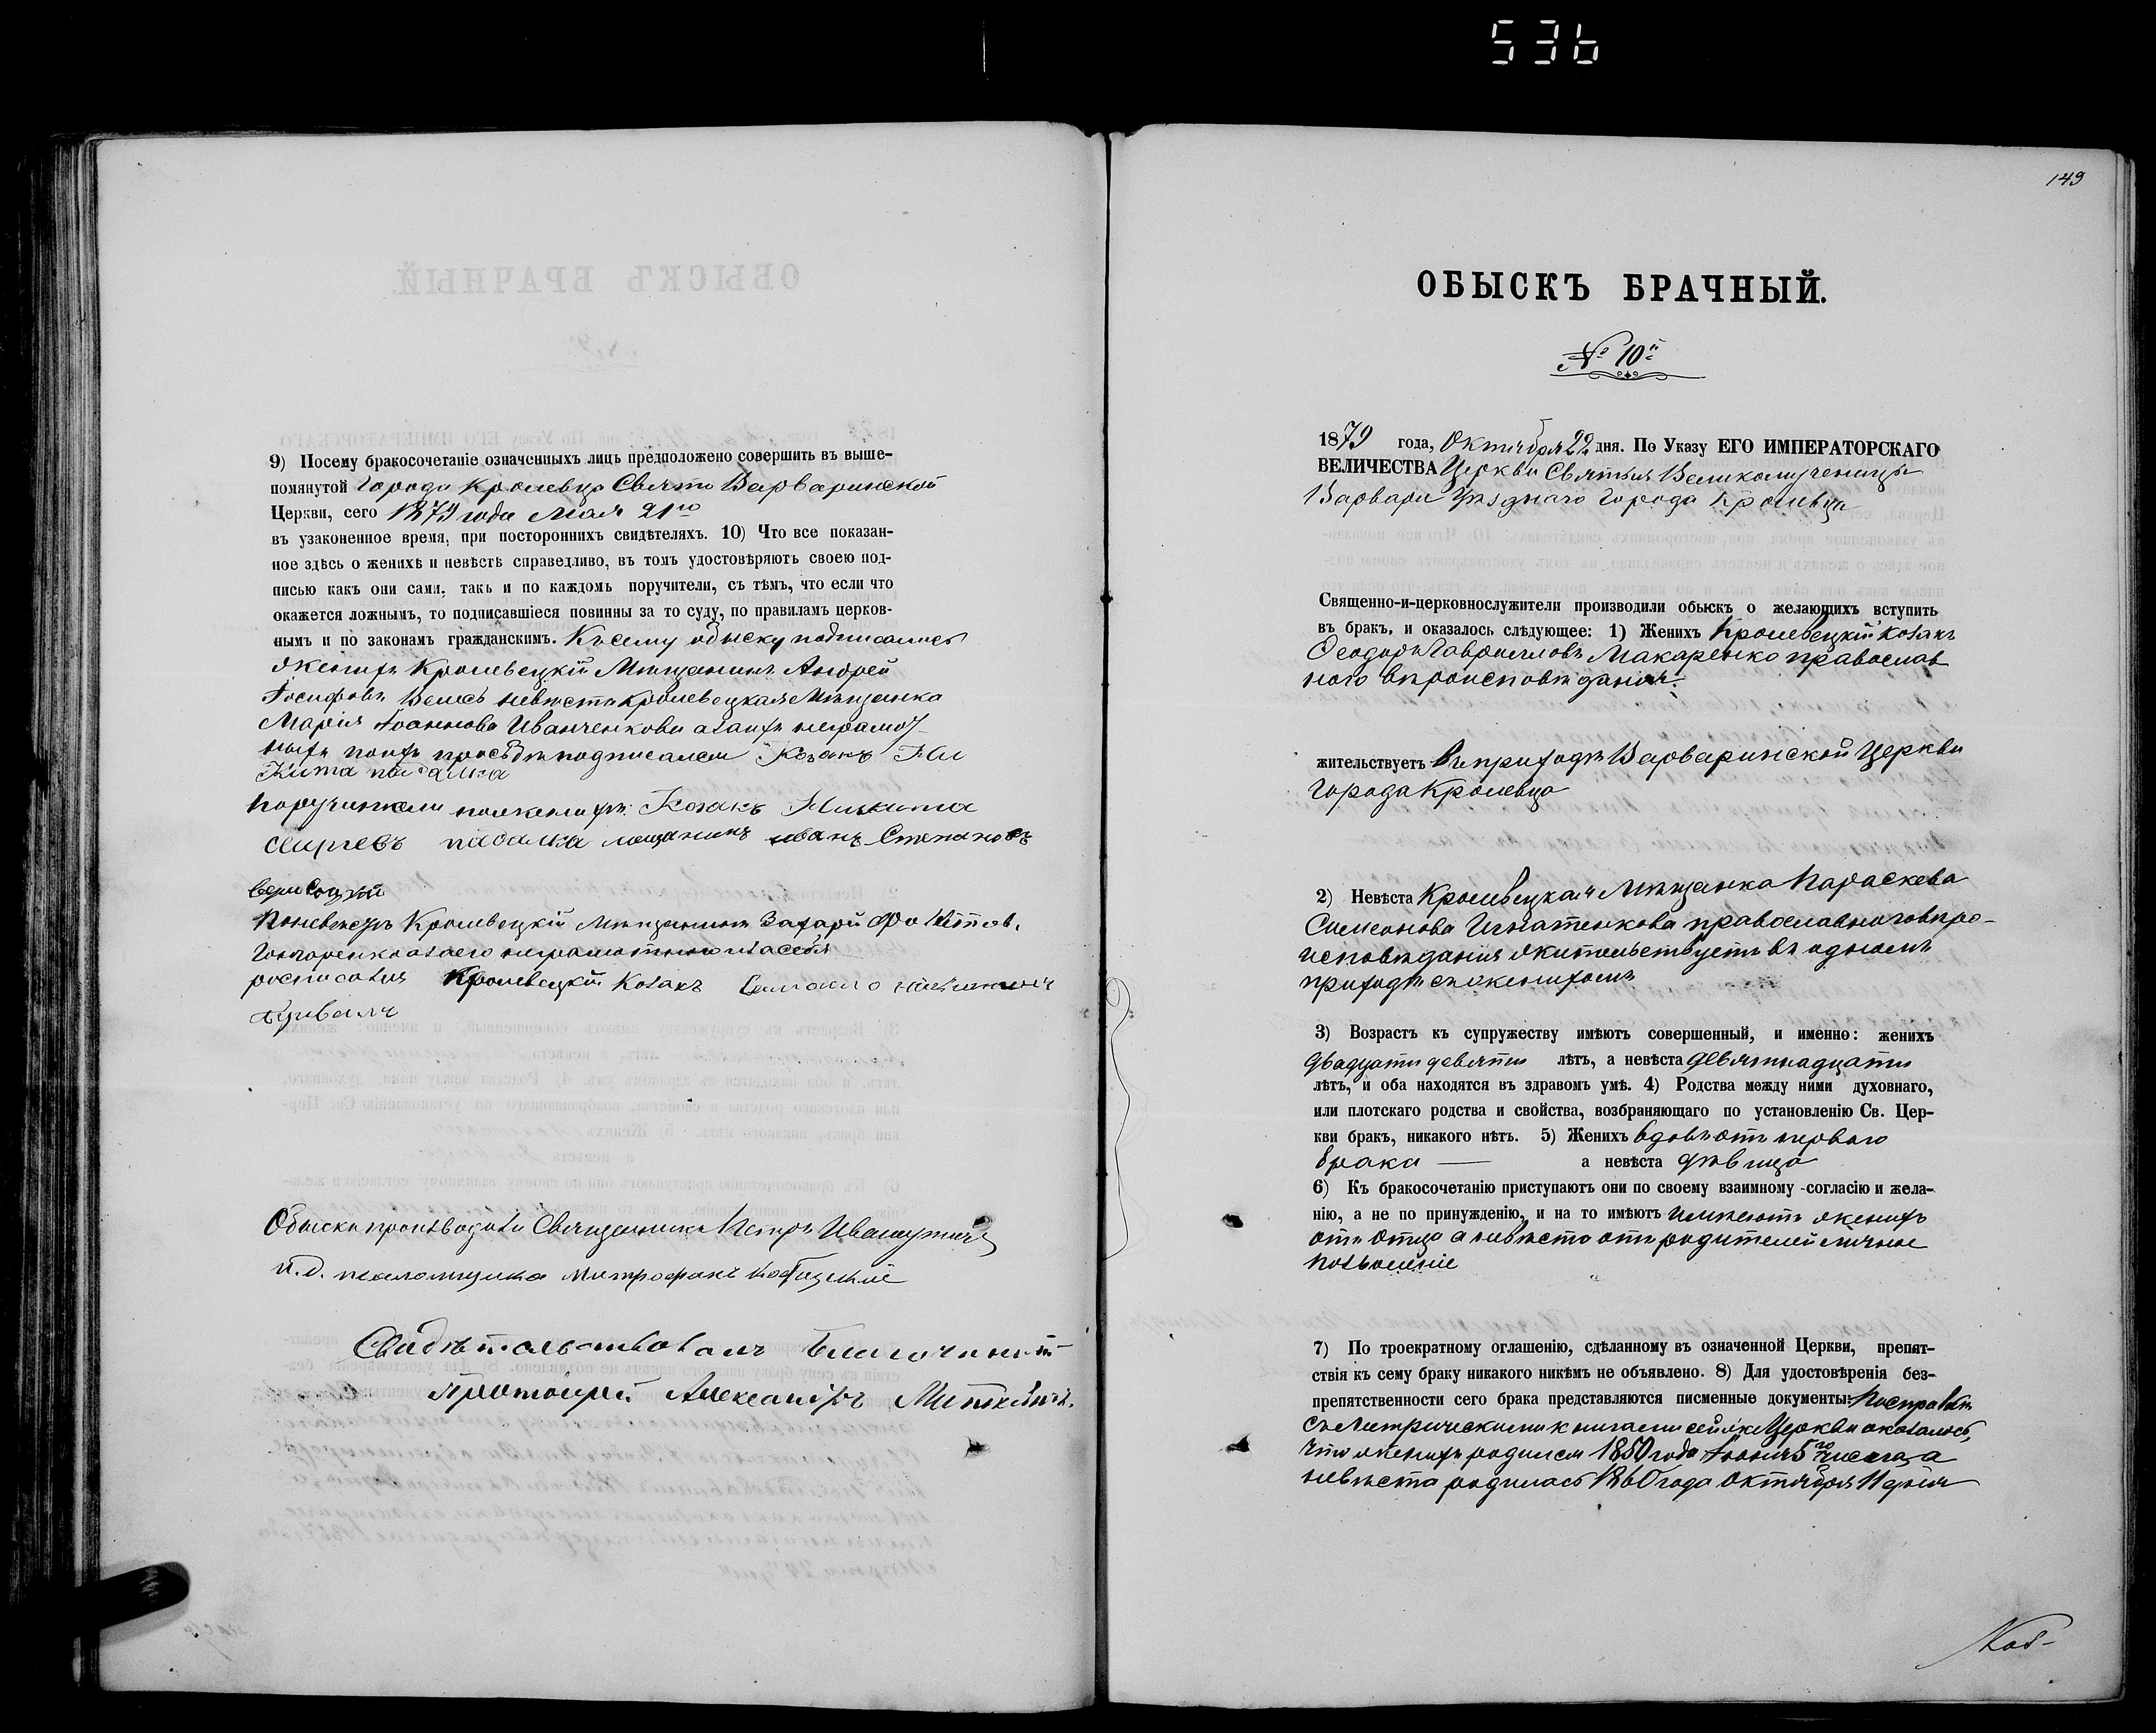 536
9) Посему бракосочетаніе означенныхъ лицъ предположено совершить въ выше-
помянутой Города Кролевца Свято Варваринской
Церкви, сего 1879 года Мая 21го
въ узаконенное время, при постороннихъ свидѣтеляхъ. 10) Что все показан-
ное здѣсь о женихѣ и невѣстѣ справедливо, въ томъ удостовѣряютъ своею под-
писью какъ они сами, такъ и по каждомъ поручители, съ тѣмъ, что если что
окажется ложнымъ, то подписавшіеся повинны за то суду, по правиламъ церков-
нымъ и по законамъ гражданскимъ. Къ сему обыску подписались
женихъ Кролевецкій Мѣщанинъ Андрей
Іосифовъ Велесъ невѣста Кролевецкая Мѣщанка
Марія Іоаннова Иванченкова а за ихъ неграмот-
ныхъ по ихъ просьбѣ подписался Козакъ
Поручители по женихѣ: Козакъ Никита
падалка мещанинъ иванъ Степановъ
По невѣстѣ Кролевецкій Мѣщанинъ Захарій
Гончаренко а за его неграмотного и за себя
росписался Кролевецкій Козакъ
Обыскъ производили Священникъ Петръ
и.д. псаломщика Митрофанъ
Свидѣтельствовалъ Благочинный
Протоіерей Александръ
149
ОБЫСКЪ БРАЧНЫЙ.
№ 10й
1879 года, Октября 22 дня. По Указу ЕГО ИМПЕРАТОРСКАГО
ВЕЛИЧЕСТВА Церкви Святыя Великомученицы
Варвары уѣзднаго города Кролевца
Священно-и-церковнослужители производили обыскъ о желающихъ вступить
въ бракъ, и оказалось слѣдующее: 1) Женихъ Кролевецкій козакъ
Ѳеодоръ Гавріиловъ Макаренко православ
ного вѣроисповѣданія.
жительствуетъ въ приходѣ Варваринской Церкви
Города Кролевца
2) Невѣста Кролевецкая Мѣщанка Параскева
Симеонова Игнатенкова православного вѣро-
исповѣданія жительствуетъ въ одномъ
приходѣ съ женихомъ
3) Возрастъ къ супружеству имѣютъ совершенный, и именно: женихъ
двадцати девяти лѣтъ, а невѣста девятнадцати
лѣтъ, и оба находятся въ здравомъ умѣ. 4) Родства между ними духовнаго,
или плотскаго родства и свойства, возбраняющаго по установленію Св. Цер-
кви бракъ, никакого нѣтъ. 5) Женихъ вдовъ отъ первого
брака — а невѣста дѣвица
6) Къ бракосочетанію приступаютъ они по своему взаимному согласію и жела-
нію, а не по принужденію, и на то имѣютъ имѣютъ женихъ
отъ отца а невѣста отъ родителей личное
позволеніе
7) По троекратному оглашенію, сдѣланному въ означенной Церкви, препят-
ствія къ сему браку никакого никѣмъ не объявлено. 8) Для удостовѣренія без-
препятственности сего брака представляются писменные документы: По справкѣ
съ Метрическими книгами сей же Церкви оказалось,
что женихъ родился 1850 года Іюня 5го числа, а
невѣста родилась 1860 года Октября 11 дня